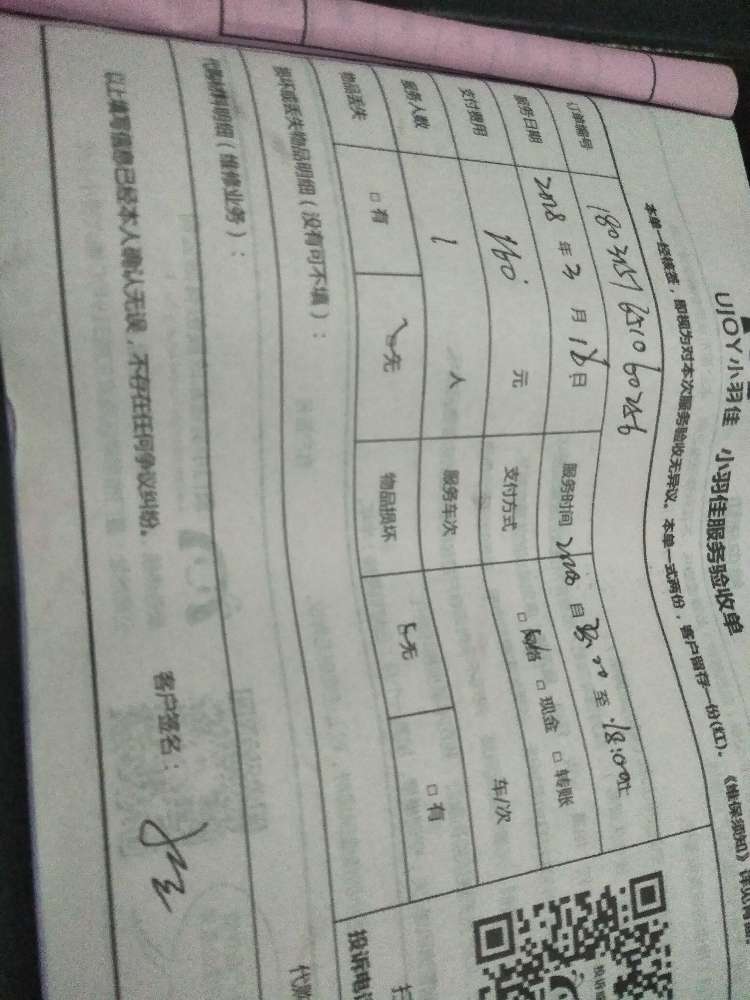 UJOY小羽佳 小羽佳服务验收单
本单一经核签，即视为对本次服务验收无异议。本单一式两份，客户留存一份(红)。《维保须知》
订单编号
服务日期 2018 年 3 月 18 日 服务时间 自 至 18:00止
支付费用 160 元 支付方式 □ □ 现金 □ 转账
服务人数 1 人 服务车次 车/次
物品丢失 □ 有 无 物品损坏 无 □ 有
损坏或丢失物品明细（没有可不填）：
代购材料明细（维修业务）：
以上填写信息已经本人确认无误，不存在任何争议纠纷。
客户签名：
投诉电
代购